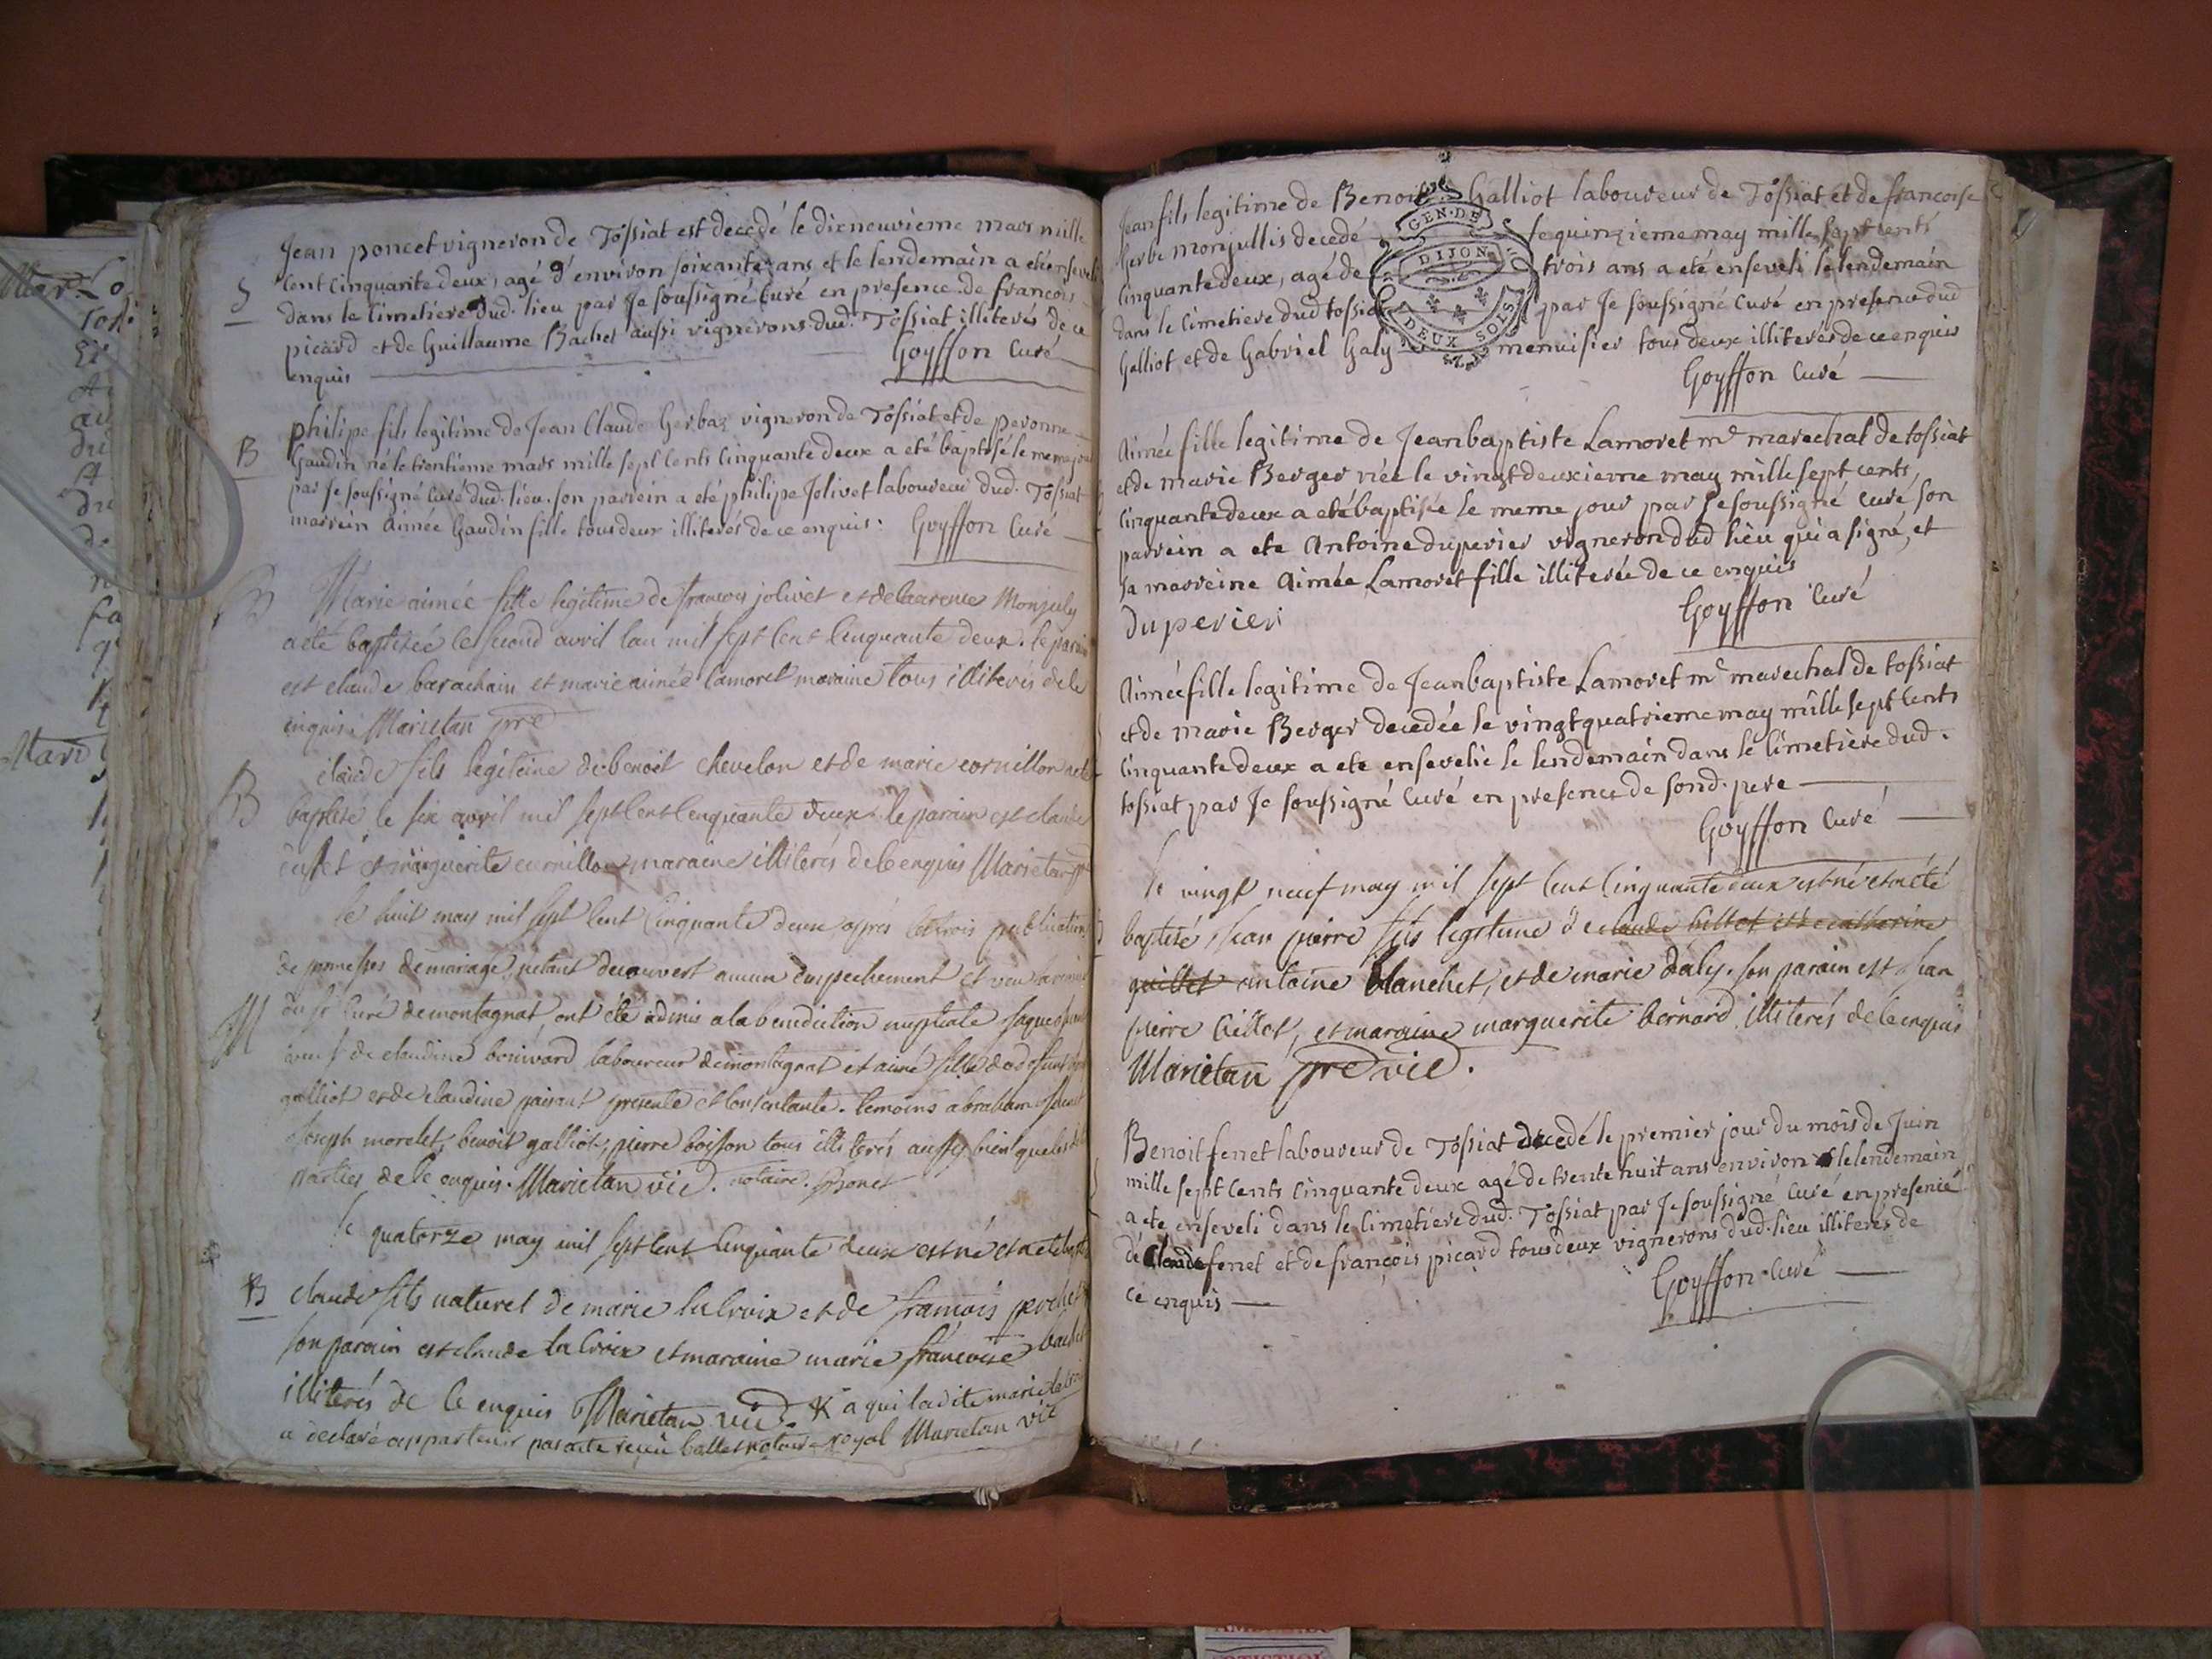 Jean poncet vigneron de Tossiat est decedé le dixneuvieme mars mille
cent cinquante deux, agé d'environ soixante ans et le lendemain a eté enseveli
S
dans le cimetiere dud. lieu par Je soussigné Curé en presence de francois
picard et de Guillaume Bachet aussi vignerons dud. Tossiat illiterés de ce
enquis Goyffon Curé
philipe fils legitime de Jean Claude Gerbaz vigneron de Tossiat et de peronne
B
Gaudin né le trentieme mars mille sept Cents Cinquante deux a eté baptisé le meme jour
par Je soussigné Curé dud. lieu. son parrein a eté philipe Jolivet laboureur dud. Tossiat
marrein Aimée Gaudin fille tous deux illiterés de ce enquis. Goyffon Curé
B
Marie aimée fille legitime de francois jolivet et de laurence Monjuly
a été baptisée le second avril lan mil sept cent Cinquante deux. le parain
est claude barachain et marie aimée lamoret maraine tous illiterés de le
enquis. Marietan pre
B
claude fils legitime de benoit chevelon et de marie cornillon a eté
baptisé le six avril mil sept Cent Cinquante deux. le parain est claude
et marguerite cornillon maraine illiterés de ce enquis Marietan pre
le huit may mil sept Cent Cinquante deux aprés les trois publications
de promesses de mariage, netant decouvert aucun empechement et veu la remise
M
du sr. Curé de montagnat, ont été admis a la benediction nuptiale
veuf de claudine bonivard laboureur de montagnat et aimé fille de defunt
galliot et de claudine paisant presente et Consentante. temoins abraham
Joseph morelet, benoit galliot, pierre boisson tous illiterés aussy bien que les
parties de le enquis. Marietan vic. notaire. Bonet
le quatorze may mil sept Cent Cinquante deux est né et a eté baptisé
B
claude fils naturel de marie la Croix et de francois pochet
son parain est claude la Croix et maraine marie francoise bachet
illiterés de Ce enquis Marietan vic. * a qui ladite marie
a declaré appartenir par acte reçu ballet notaire royal Marietan vic
Jean fils legitime de Benoit Galliot laboureur de Tossiat et de francoise
Gerbe monjullis decedé le quinzieme may mille sept cents
Cinquante deux, agé de trois ans a eté enseveli le lendemain
dans le Cimetiere dud tossiat par Je soussigné Curé en presence dud
Galliot et de Gabriel Galy menuisier tous deux illiterés de ce enquis
Goyffon Curé
GEN. DE
DIJON
DEUX SOLS
Aimée fille legitime de Jeanbaptiste Lamoret me marechal de tossiat
et de marie Berger née le vingtdeuxieme may mille sept cents,
Cinquante deux a eté baptisée le meme jour par Je soussigné Curé, son
parrein a ete Antoine duperier vigneron dud lieu qui a signé, et
sa marreine Aimée Lamoret fille illiterée de ce enquis
duperier Goyffon Curé
Aimée fille legitime de Jeanbaptiste Lamoret me marechal de tossiat
et de marie Berger decedée le vingtquatrieme may mille sept Cents
Cinquante deux a ete ensevelie le lendemain dans le Cimetiere dud.
tossiat par Je soussigné Curé en presence de sond. pere
Goyffon Curé
le vingt neuf may mil sept Cent Cinquante deux est né et a été
baptisé, Jean pierre fils legitime de claude billot et de catherine
guillet antoine blanchet, et de marie daly. son parain est Jean
pierre billot, et maraine marguerite bernard illiterés de le enquis
Marietan pre vic.
Benoit fenet laboureur de Tossiat decedé le premier jour du mois de Juin
mille sept Cents Cinquante deux agé de trente huit ans environ le lendemain
a ete enseveli dans le Cimetiere dud. Tossiat par Je soussigné Curé en presence
de Claude fenet et de françois picard tous deux vignerons dud. lieu illiterés de
ce enquis Goyffon Curé